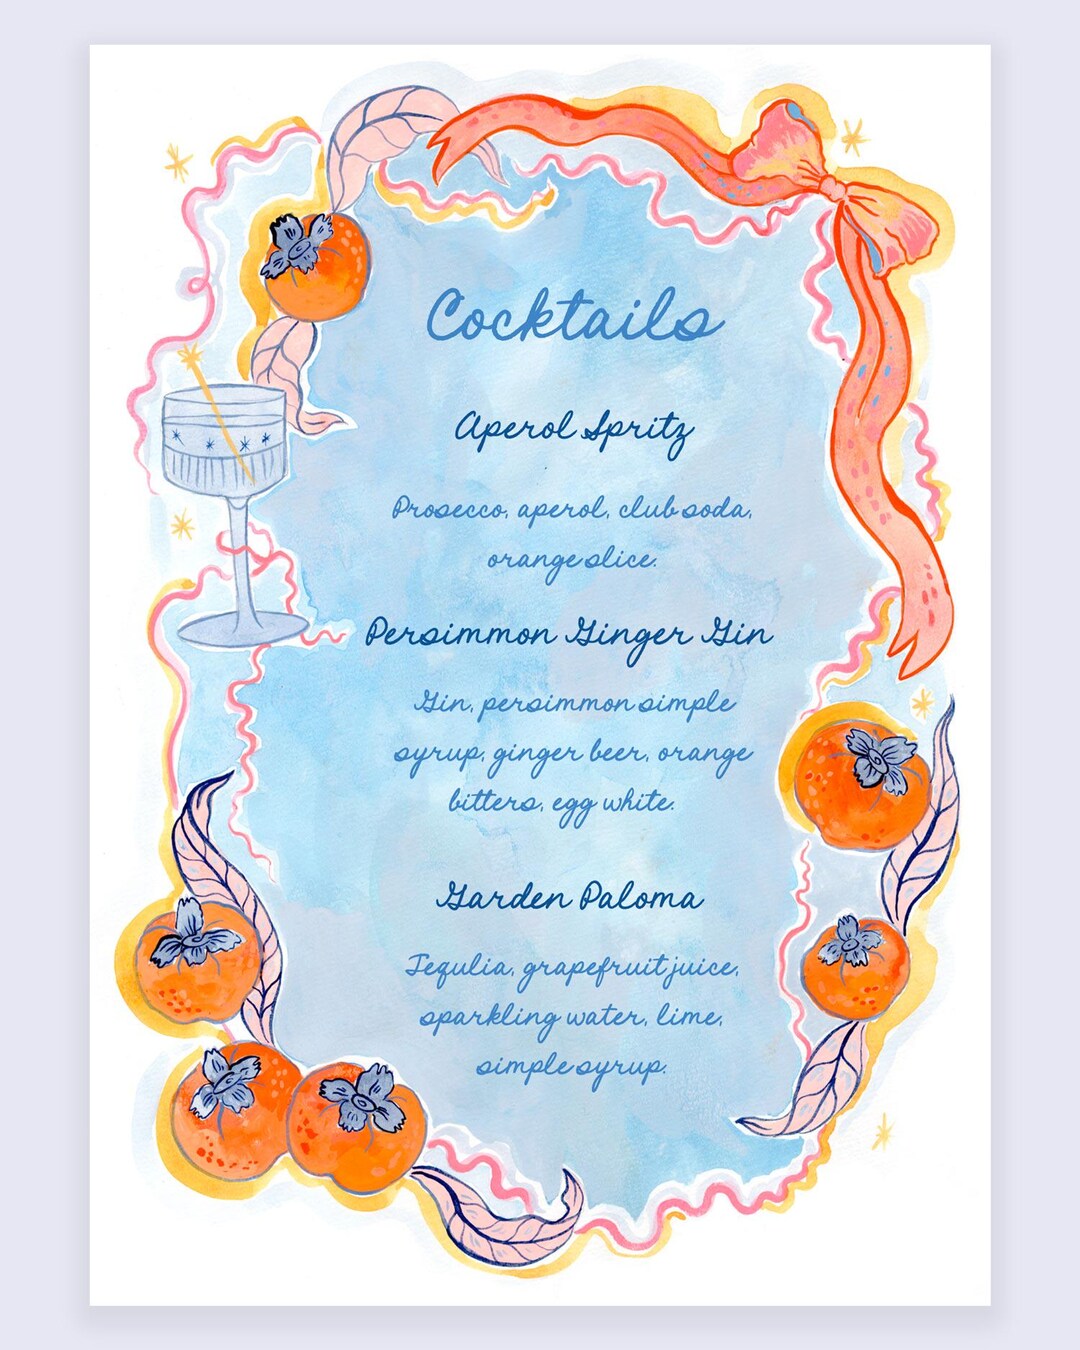 Cocktails
Aperol Spritz
Prosecco, aperol, club soda,
orange slice.
Persimmon Ginger Gin
Gin, persimmon simple
syrup, ginger beer, orange
bitters, egg white.
Garden Paloma
Tequlia, grapefruit juice,
sparkling water, lime,
simple syrup.